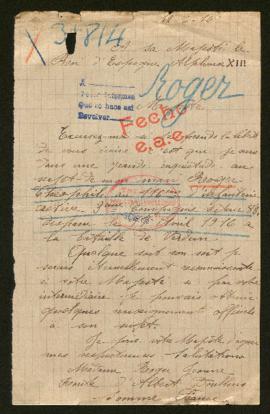 3-814
A sa Majesté le
Roi d'Espagne Alphonse XIII
Roger
A
Devolver
Fecho
e.a.e.
Majesté
Excusez-moi si je prends la liberté
de vous écrire c'est que je suis
dans une grande inquiétude au
sujet de mon mari Roger
Théophile
active 9ème Compagnie
disparu le Avril 1916 à
la bataille de Verdun
Quelque soit son sort je
serais éternellement reconnaissante
à votre Majesté si par votre
intermédiaire je pouvais obtenir
quelques renseignements officiels
à son sujet.
Je prie votre Majesté d'agréer
mes respectueuses salutations
Madame Roger
d'Albert
Somme France